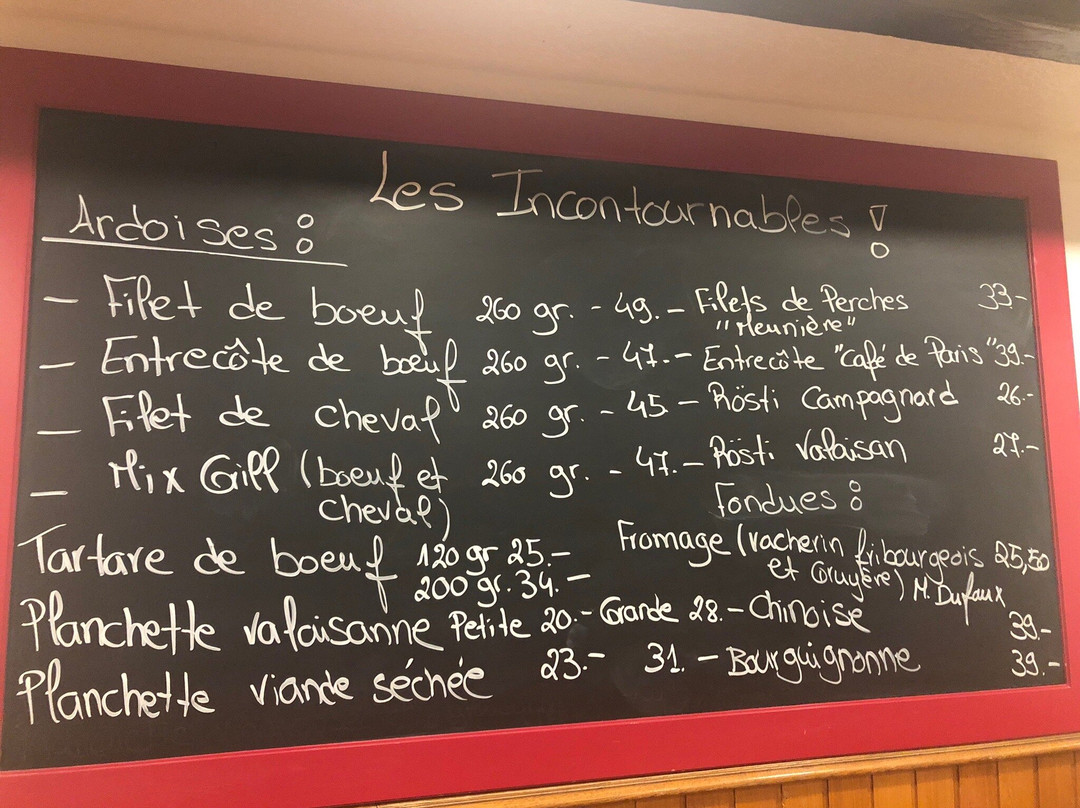 Les Incontournables !
Ardoises :
- Filet de boeuf 260 gr. - 49.-
- Entrecôte de bœuf 260 gr. - 47.-
- Filet de cheval 260 gr. - 45
- Mix Grill (boeuf et 260 gr. - 47.-
cheval)
Tartare de boeuf 120 gr 25.-
200 gr. 34.-
Planchette valaisanne Petite 20.- Grande 28.-
Planchette viande séchée 23.- 31.-
Filets de Perches 33.-
"Meunière"
- Entrecôte "Café de Paris" 39.-
- Rösti Campagnard 26.-
- Rösti Valaisan 27.-
Fondues :
Fromage (vacherin fribourgeois 25,50
et Gruyère) M. Dufaux
- Chinoise 39.-
- Bourguignonne 39.-